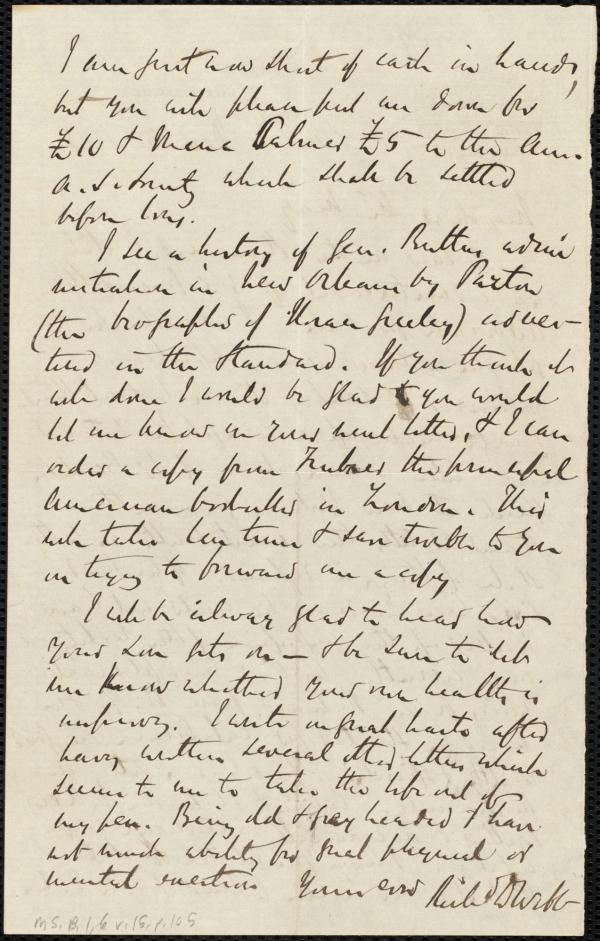 I am just now short of cash in hand,
but you will please put me down for
£10 & Maria Palmer £5 to the Am.
A. S. Society which shall be settled
before long.
I see a history of Gen. Butler's admin
istration in New Orleans by Parton
(the biographer of Horace Greeley) adver-
tised in the Standard. If you think it
well done I would be glad if you would
let me know in your next letter, & I can
order a copy from Trubner the principal
American bookseller in London. This
will take less time & save trouble to you
in trying to forward me a copy
I will be always glad to hear how
your son gets on — & be sure to let
me know whether your own health is
improving. I write in great haste after
having written several other letters which
seems to me to take the life out of
my pen. Being old & grey headed I have
not much ability for great physical or
mental exertion Yours ever Richd D Webb
MS. B. 1. 6 v. 15, p. 105